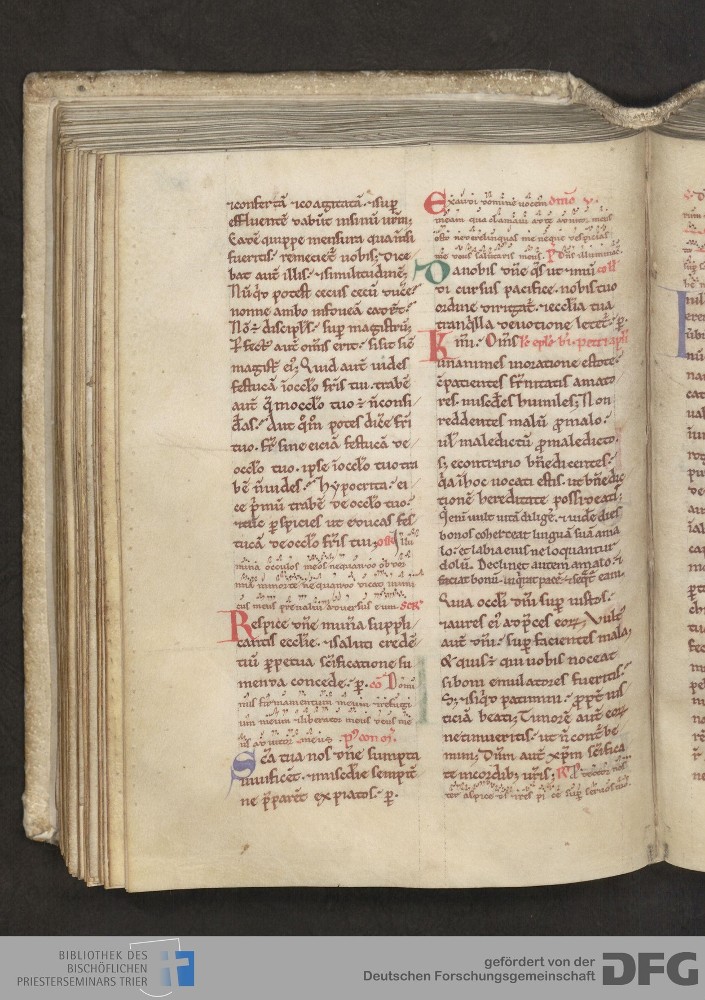 ⁊confertā ⁊coagitatā. ⁊sup̄
effluentē dabūt insinū ur̄m;
Eadē quippe mensura qua m̄si
fueritis. remeciet᷑ uobis; Dice
bat aut̄ illis. ⁊similitudinē;
Nūq'd potest cecus cecū duće.
nonne ambo infoueā cadēt.
Nō ē discipl's sup̄ magistrū;
P̄fect' aut̄ om̄is erit. si sit sič
magist̄ ei'; Quid aut̄ uides
festucā īoc̄lo fr̄is tui. trabē
aut̄ q̄ inoc̄lo tuo ē n̄consi
d̄as. Aut q'm̊ potes dić'e fr̄i
tuo. fr̄ sine eiciā festucā de
oc̄lo tuo. ipse īoc̄lo tuo tra
bē n̄uides. hypocrita. ei
ce p̄mū trabē de oc̄lo tuo.
⁊tūc p̄spicies ut educas fes
tucā de oc̄lo fr̄is tui; off̄ Illu
mina oculos meos nequando ob dor
miā inmorte ne quando dicat inimi
cus meus preualui aduersus eum. Secr̄
Respice dn̄e munera suppli
cantis ecclīe. ⁊saluti credē
tiū p̄petua sc̄ificatione su
menda concede. p. cō Domi
nus firmamentum meum ⁊refugi
um meum ⁊liberator meus deus me
us adiutor meus. p' con oī.
Sc̄a tua nos dn̄e sumpta
uiuificēt. ⁊misc̄die sempit̄
ne p̄parēt expiatos. p.
Exaudi domine uocem Dn̄ico v.
meam qua clamaui ad te adiutor meus
esto ne derelinquas me neque despicias
me deus salutaris meus. p̄ Dn̄s illuminac̄.
Da nobis dn̄e q̄s ut ⁊mū coll̄
di cursus pacifice. nobis tuo
ordine dirigat᷑. ⁊ecclīa tua
tranq'lla deuotione letet᷑. p.
Km̄i. Om̄s lc̄ ep̄le bi. petri ap̄li
unanimes inoratione estote.
cōpatientes frr̄nitatis amato
res. misc̄des humiles; Non
reddentes malū p̄ malo.
ul' maledictū p̄ maledicto.
s; econtrario bn̄edicentes.
q̄a ihoc uocati estis. ut bn̄edic
tionē hereditate possideatis;
Q'enī uult uitā dilig'e. ⁊uid'e dies
bonos coherceat linguā suā ama
lo. et labia eius ne loquantur
dolū. Declinet autem amalo. ⁊
faciat bonū. inq'rat pacē. ⁊seq't' eam.
Quia oc̄li dn̄i sup̄ iustos.
⁊aures ei' adp̄ces eor̄; Uult'
aut̄ dn̄i. sup̄ facientes mala;
Et quis ē qui uobis noceat
si boni emulatores fueritis.
S; ⁊siq'd patimini. p̄pt̄ ius
ticiā beati; Timorē aut̄ eor̄
ne timueritis. ut n̄ contr̄be
mini; Dn̄m aut̄ xp̄m sc̄ifica
te incordib; ur̄is; R̄ P̄tector nos
ter aspice ds̄ ⁊res pi ce sup̄ seruos tuo.
BIBLIOTHEK DES
BISCHÖFLICHEN
PRIESTERSEMINARS TRIER
gefördert von der
Deutschen Forschungsgemeinschaft
DFG